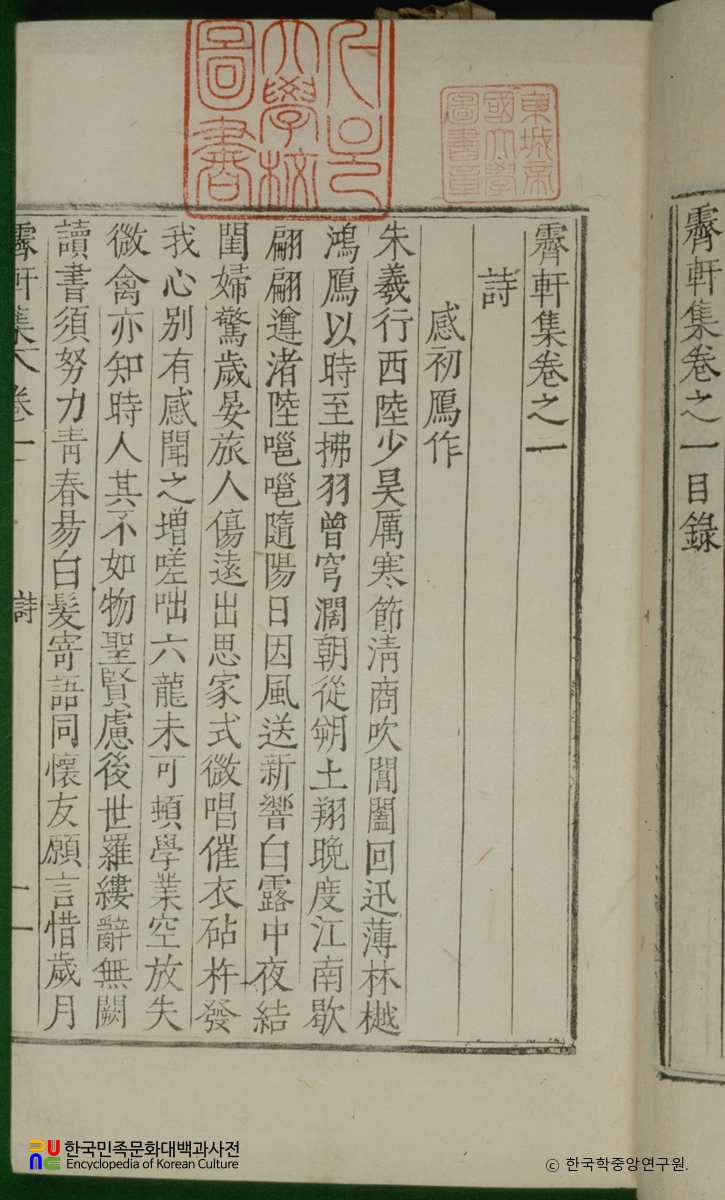 霽軒集卷之一目錄
서울大學校圖書
京城帝國大學圖書章
霽軒集卷之一
詩
感初鴈作
朱羲行西陸少昊厲寒節淸商吹閶闔回迅薄林樾
鴻鴈以時至拂羽曾穹濶朝從朔土翔晩度江南歇
翩翩遵渚陸嗈嗈隨陽日因風送新響白露中夜結
閨婦驚歲晏旅人傷遠出思家式微唱催衣砧杵發
我心別有感聞之增嗟咄六龍未可頓學業空放失
微禽亦知時人其不如物聖賢慮後世羅縷辭無闕
讀書須努力靑春易白髮寄語同懷友願言惜歲月
霽軒集 卷一 詩 一
한국민족문화대백과사전
Encyclopedia of Korean Culture
© 한국학중앙연구원.